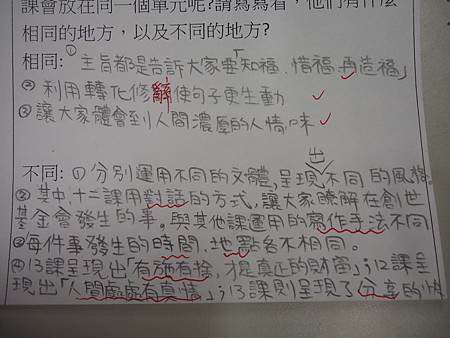 課會放在同一個單元呢?請寫寫看,他們有什麼
相同的地方,以及不同的地方?
相同:①主旨都是告訴大家要「知福、惜福、再造福」
②利用轉化修辭使句子更生動
③讓大家體會到人間濃厚的人情味
不同:①分別運用不同的文體,呈現出不同的風格。
②其中,十二課用對話的方式,讓大家瞭解在創世
基金會發生的事。與其他課運用的寫作手法不同
③每件事發生的時間、地點各不相同。
④13課呈現出「有施有捨,才是真正的財富」;12課呈
現出「人間處處有真情」;13課則呈現了分享的快